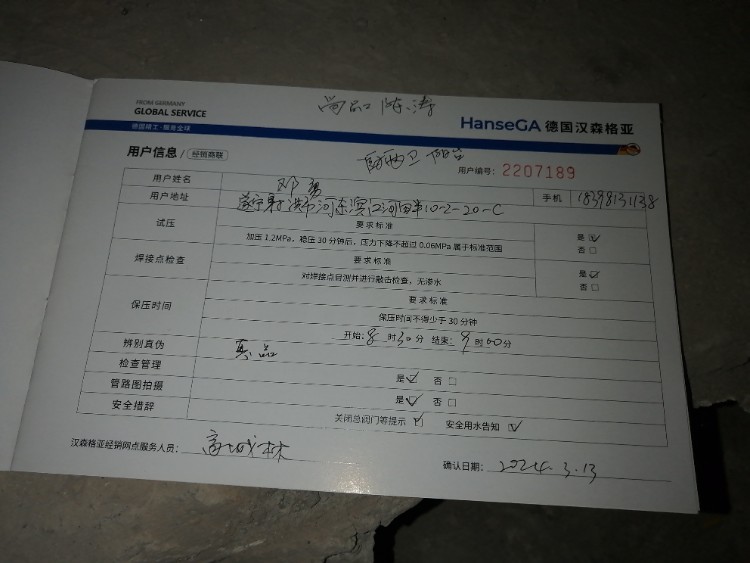 FROM GERMANY
GLOBAL SERVICE
德国精工·服务全球
尚品 陈涛
HanseGA 德国汉森格亚
用户信息 / 经销商联
厨两卫 阳台
用户编号: 2207189
用户姓名 邓勇
用户地址 遂宁射洪市河东滨江 10-2-20-C 手机 18398131138
试压 要求标准
加压 1.2MPa，稳压 30 分钟后，压力下降不超过 0.06MPa 属于标准范围 是 ☑ 否 □
焊接点检查 要求标准
对焊接点目测并进行敲击检查，无渗水 是 ☑ 否 □
保压时间 要求标准
保压时间不得少于 30 分钟
开始: 8 时 30 分 结束: 9 时 00 分
辨别真伪 真品
检查管理 是 ☑ 否 □
管路图拍摄 是 ☑ 否 □
安全措辞 关闭总阀门等提示 ☑ 安全用水告知 ☑
汉森格亚经销网点服务人员: 林
确认日期: 2024.3.13